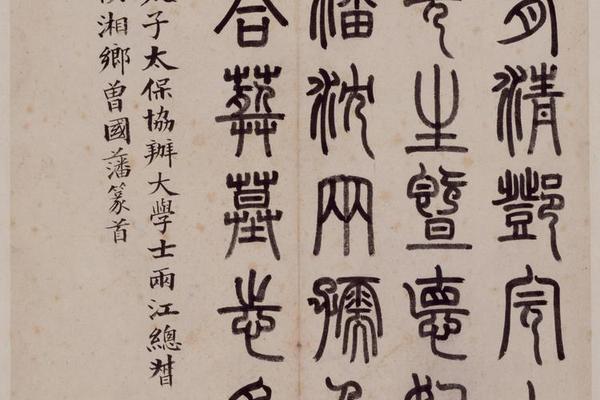 有清鄧完
先生暨悳
潘沈兩孺
合葬墓志
子太保協辦大學士兩江總督
湘鄉曾國藩篆首